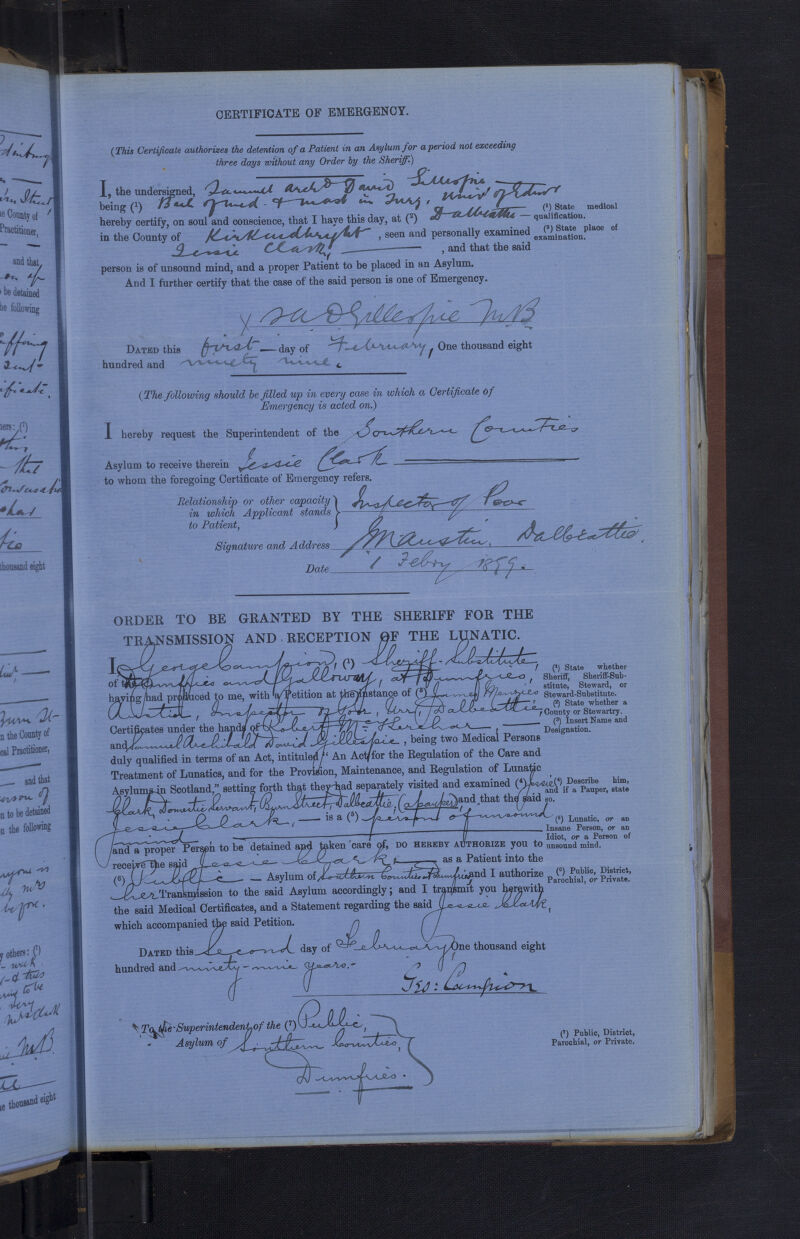 CERTIFICATE OF EMERGENCY.
(This Certificate authorizes the detention of a Patient in an Asylum for a period not exceeding
three days without any Order by the Sheriff.)
I, the undersigned, Samuel Archd David Gillespie
being (¹) Bach of Med. & Mast in Surg, Univ of Edinr
hereby certify, on soul and conscience, that I have this day, at (²) Dalbeattie —
in the County of Kirkcudbright, seen and personally examined
Jessie Clark, — , and that the said
person is of unsound mind, and a proper Patient to be placed in an Asylum.
And I further certify that the case of the said person is one of Emergency.
(¹) State medical
qualification.
(²) State place of
examination.
x S A D Gillespie M.B
DATED this first — day of February, One thousand eight
hundred and ninety nine.
(The following should be filled up in every case in which a Certificate of
Emergency is acted on.)
I hereby request the Superintendent of the Southern Counties
Asylum to receive therein Jessie Clark —
to whom the foregoing Certificate of Emergency refers.
Relationship or other capacity
in which Applicant stands
to Patient,
Inspector of Poor
Signature and Address JM Austin. Dalbeattie.
Date 1 Febry 1899.
ORDER TO BE GRANTED BY THE SHERIFF FOR THE
TRANSMISSION AND RECEPTION OF THE LUNATIC.
I, George Campion, (¹) Sheriff-Substitute,
of the (²) Dumfries and Galloway, at Dumfries,
having had produced to me, with a Petition at the instance of (³) James Menzies
Austin, Inspector of Poor, Urr, Dalbeattie,
Certificates under the hands of Robert Mc Kerchar, —
and Samuel Archibald David Gillespie, being two Medical Persons
duly qualified in terms of an Act, intituled "An Act for the Regulation of the Care and
Treatment of Lunatics, and for the Provision, Maintenance, and Regulation of Lunatic
Asylums in Scotland," setting forth that they had separately visited and examined (⁴) Jessie
Clark, Domestic Servant, Burn Street, Dalbeattie, (a pauper) and that the said
Jessie Clark, — is a (⁵) person of unsound
mind —
and a proper Person to be detained and taken care of, DO HEREBY AUTHORIZE you to
receive the said Jessie Clark, — as a Patient into the
(⁶) Public — Asylum of Southern Counties Dumfries and I authorize
her Transmission to the said Asylum accordingly; and I transmit you herewith
the said Medical Certificates, and a Statement regarding the said Jessie Clark,
which accompanied the said Petition.
(¹) State whether
Sheriff, Sheriff-Sub-
stitute, Steward, or
Steward-Substitute.
(²) State whether a
County or Stewartry.
(³) Insert Name and
Designation.
(⁴) Describe him,
and if a Pauper, state
so.
(⁵) Lunatic, or an
Insane Person, or an
Idiot, or a Person of
unsound mind.
(⁶) Public, District,
Parochial, or Private.
DATED this Second day of February, One thousand eight
hundred and ninety-nine years.-
Geo: Campion
To the Superintendent of the (⁷) Public,
Asylum of Southern Counties,
Dumfries.
(⁷) Public, District,
Parochial, or Private.